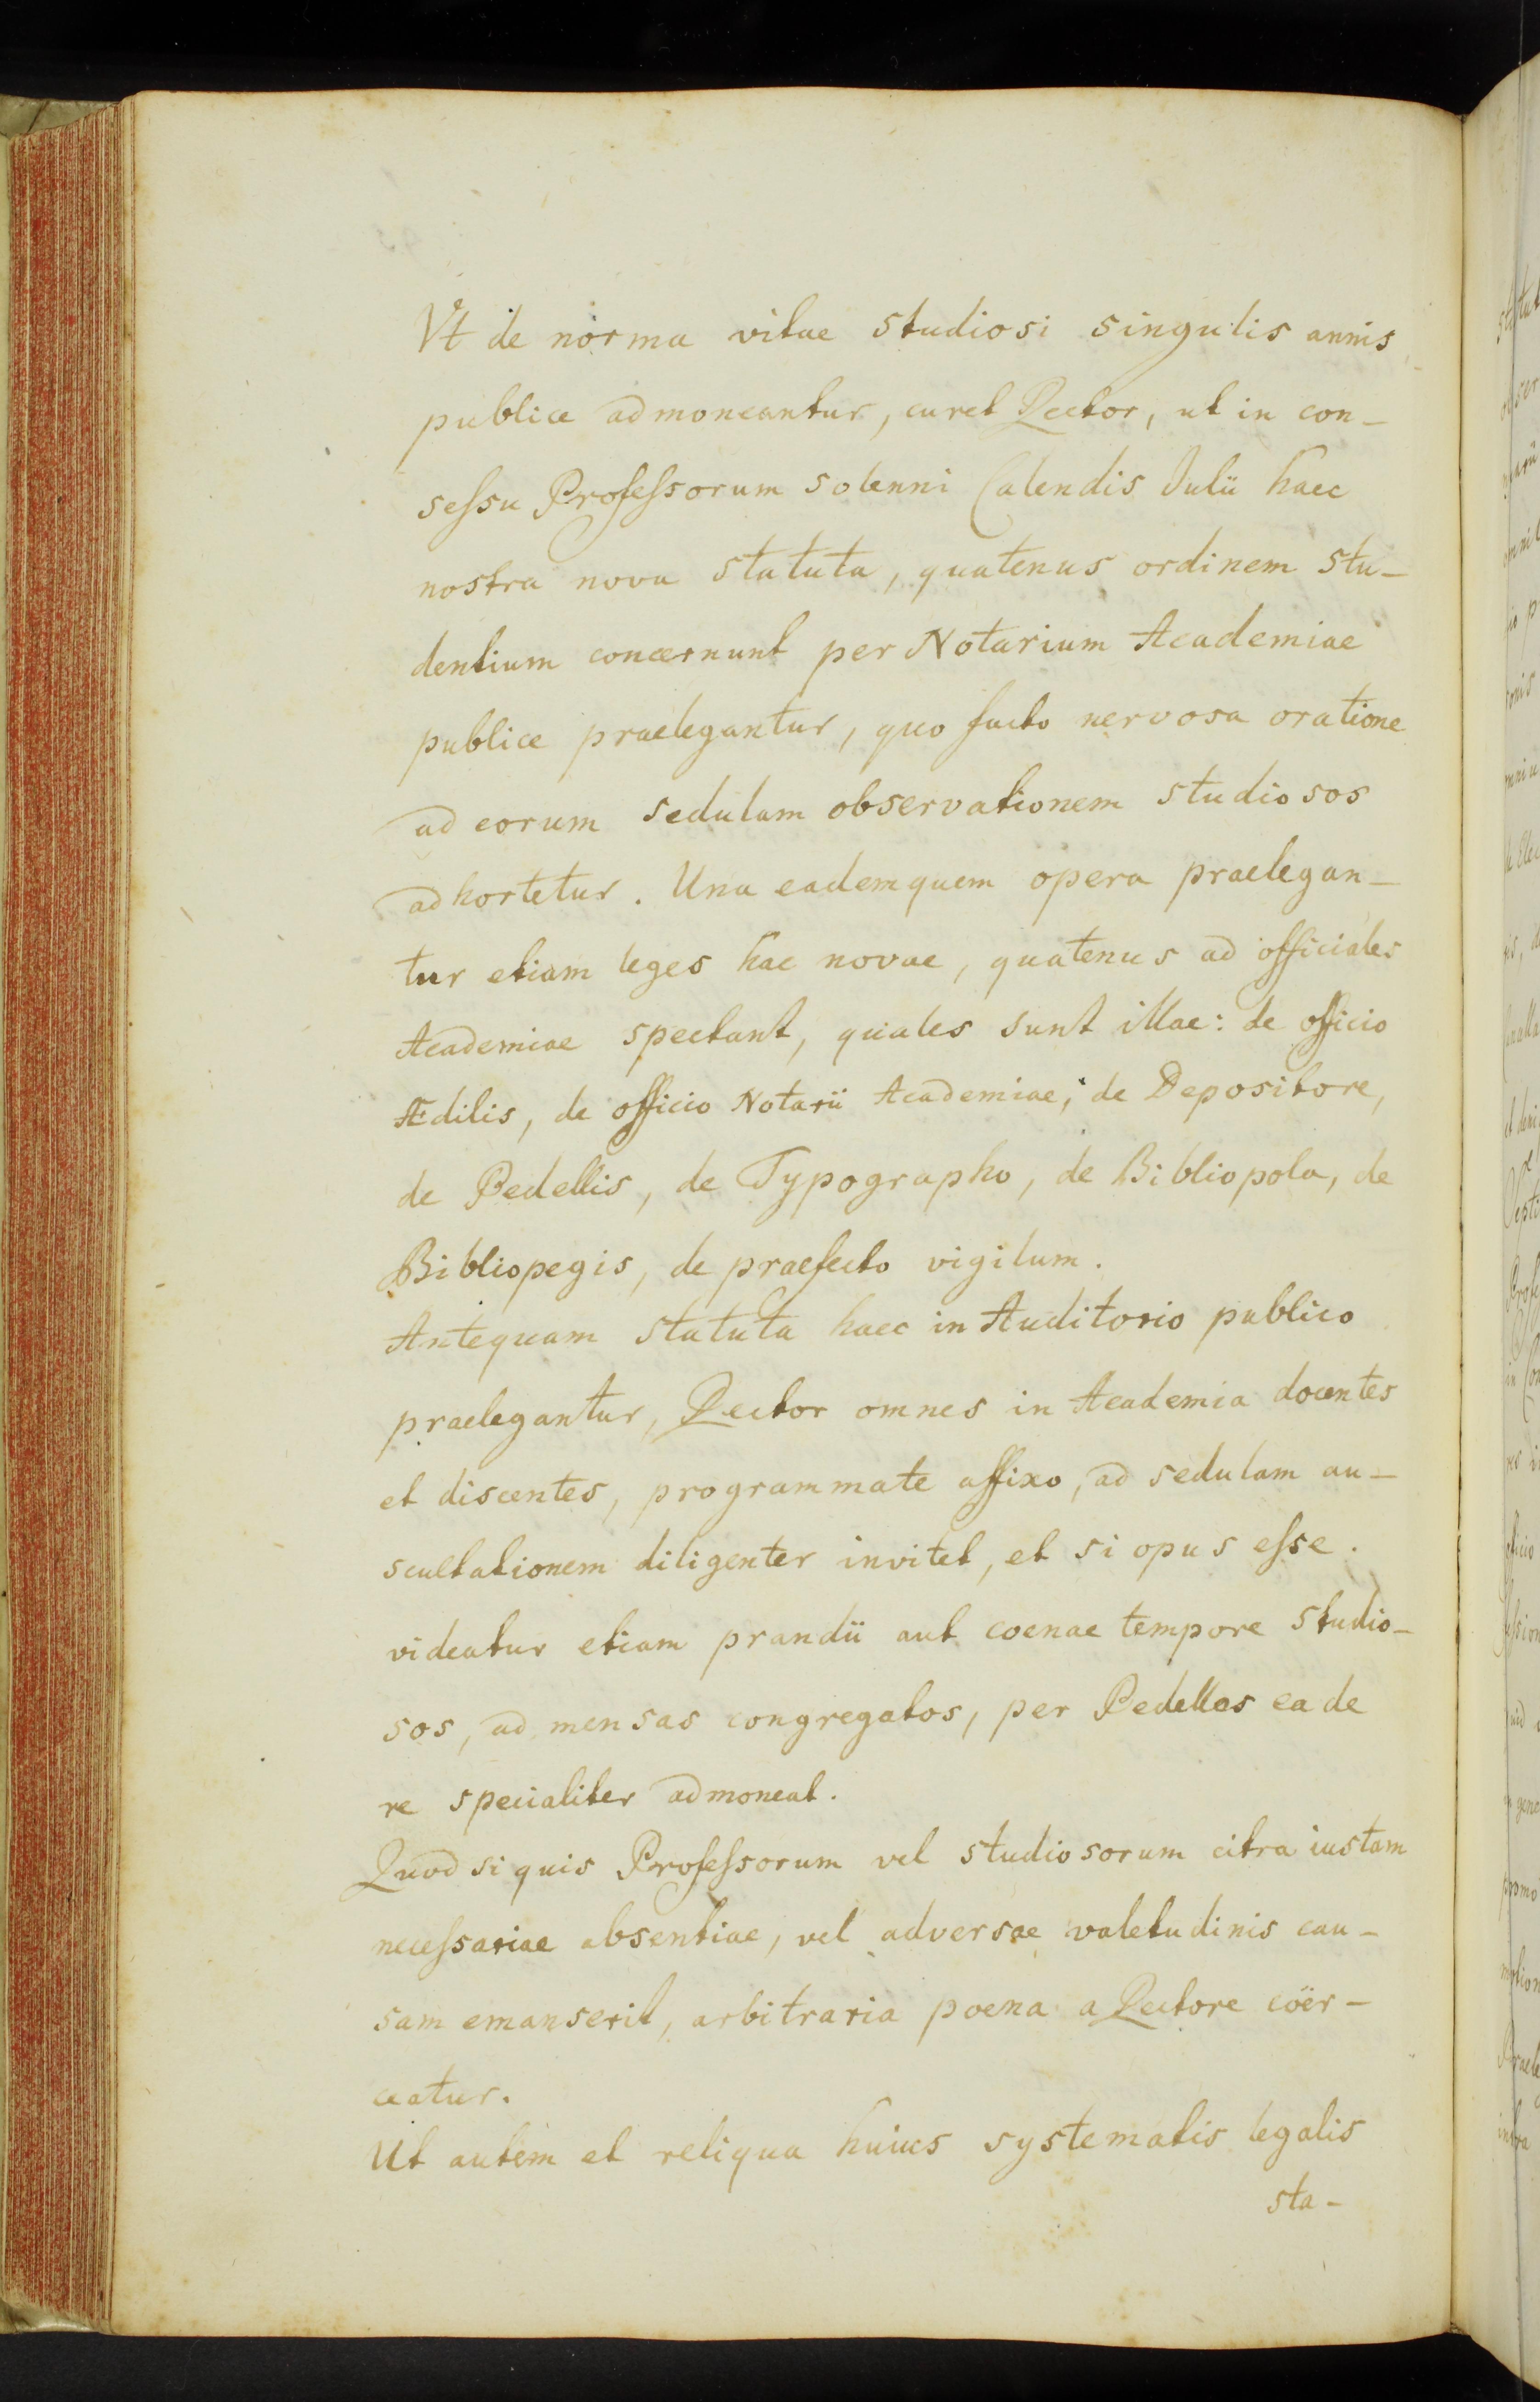 Vt de norma vitae studiosi singulis annis
publice admoneantur, curet Rector, ut in con-
seſsu Profeſsorum solenni Calendis Julii haec
nostra nova statuta, quatenus ordinem stu-
dentium concernunt per Notarium Academiae
publice praelegantur, quo facto nervosa oratione
ad eorum sedulam observationem studiosos
adhortetur. Una eademquem opera praelegan-
tur etiam leges hae novae, quatenus ad officiales
Academiae spectant, quales sunt illae: de officio
Ædilis, de officio Notarii Academiae, de Depositore,
de Pedellis, de Typographo, de Bibliopola, de
Bibliopegis, de praefecto vigilum.
Antequam statuta haec in Auditorio publico
praelegantur, Rector omnes in Academia docentes
et discentes, programmate affixo, ad sedulam au-
scultationem diligenter invitet, et si opus eſse
videatur etiam prandii aut coenae tempore studio-
sos, ad mensas congregatos, per Pedellos ea de
re specialiter admoneat.
Quod si quis Profeſsorum vel studiosorum citra iustam
neceſsariae absentiae, vel adversae valetudinis cau-
sam emanserit, arbitraria poena a Rectore coër-
ceatur.
Ut autem et reliqua huius systematis legalis
sta-